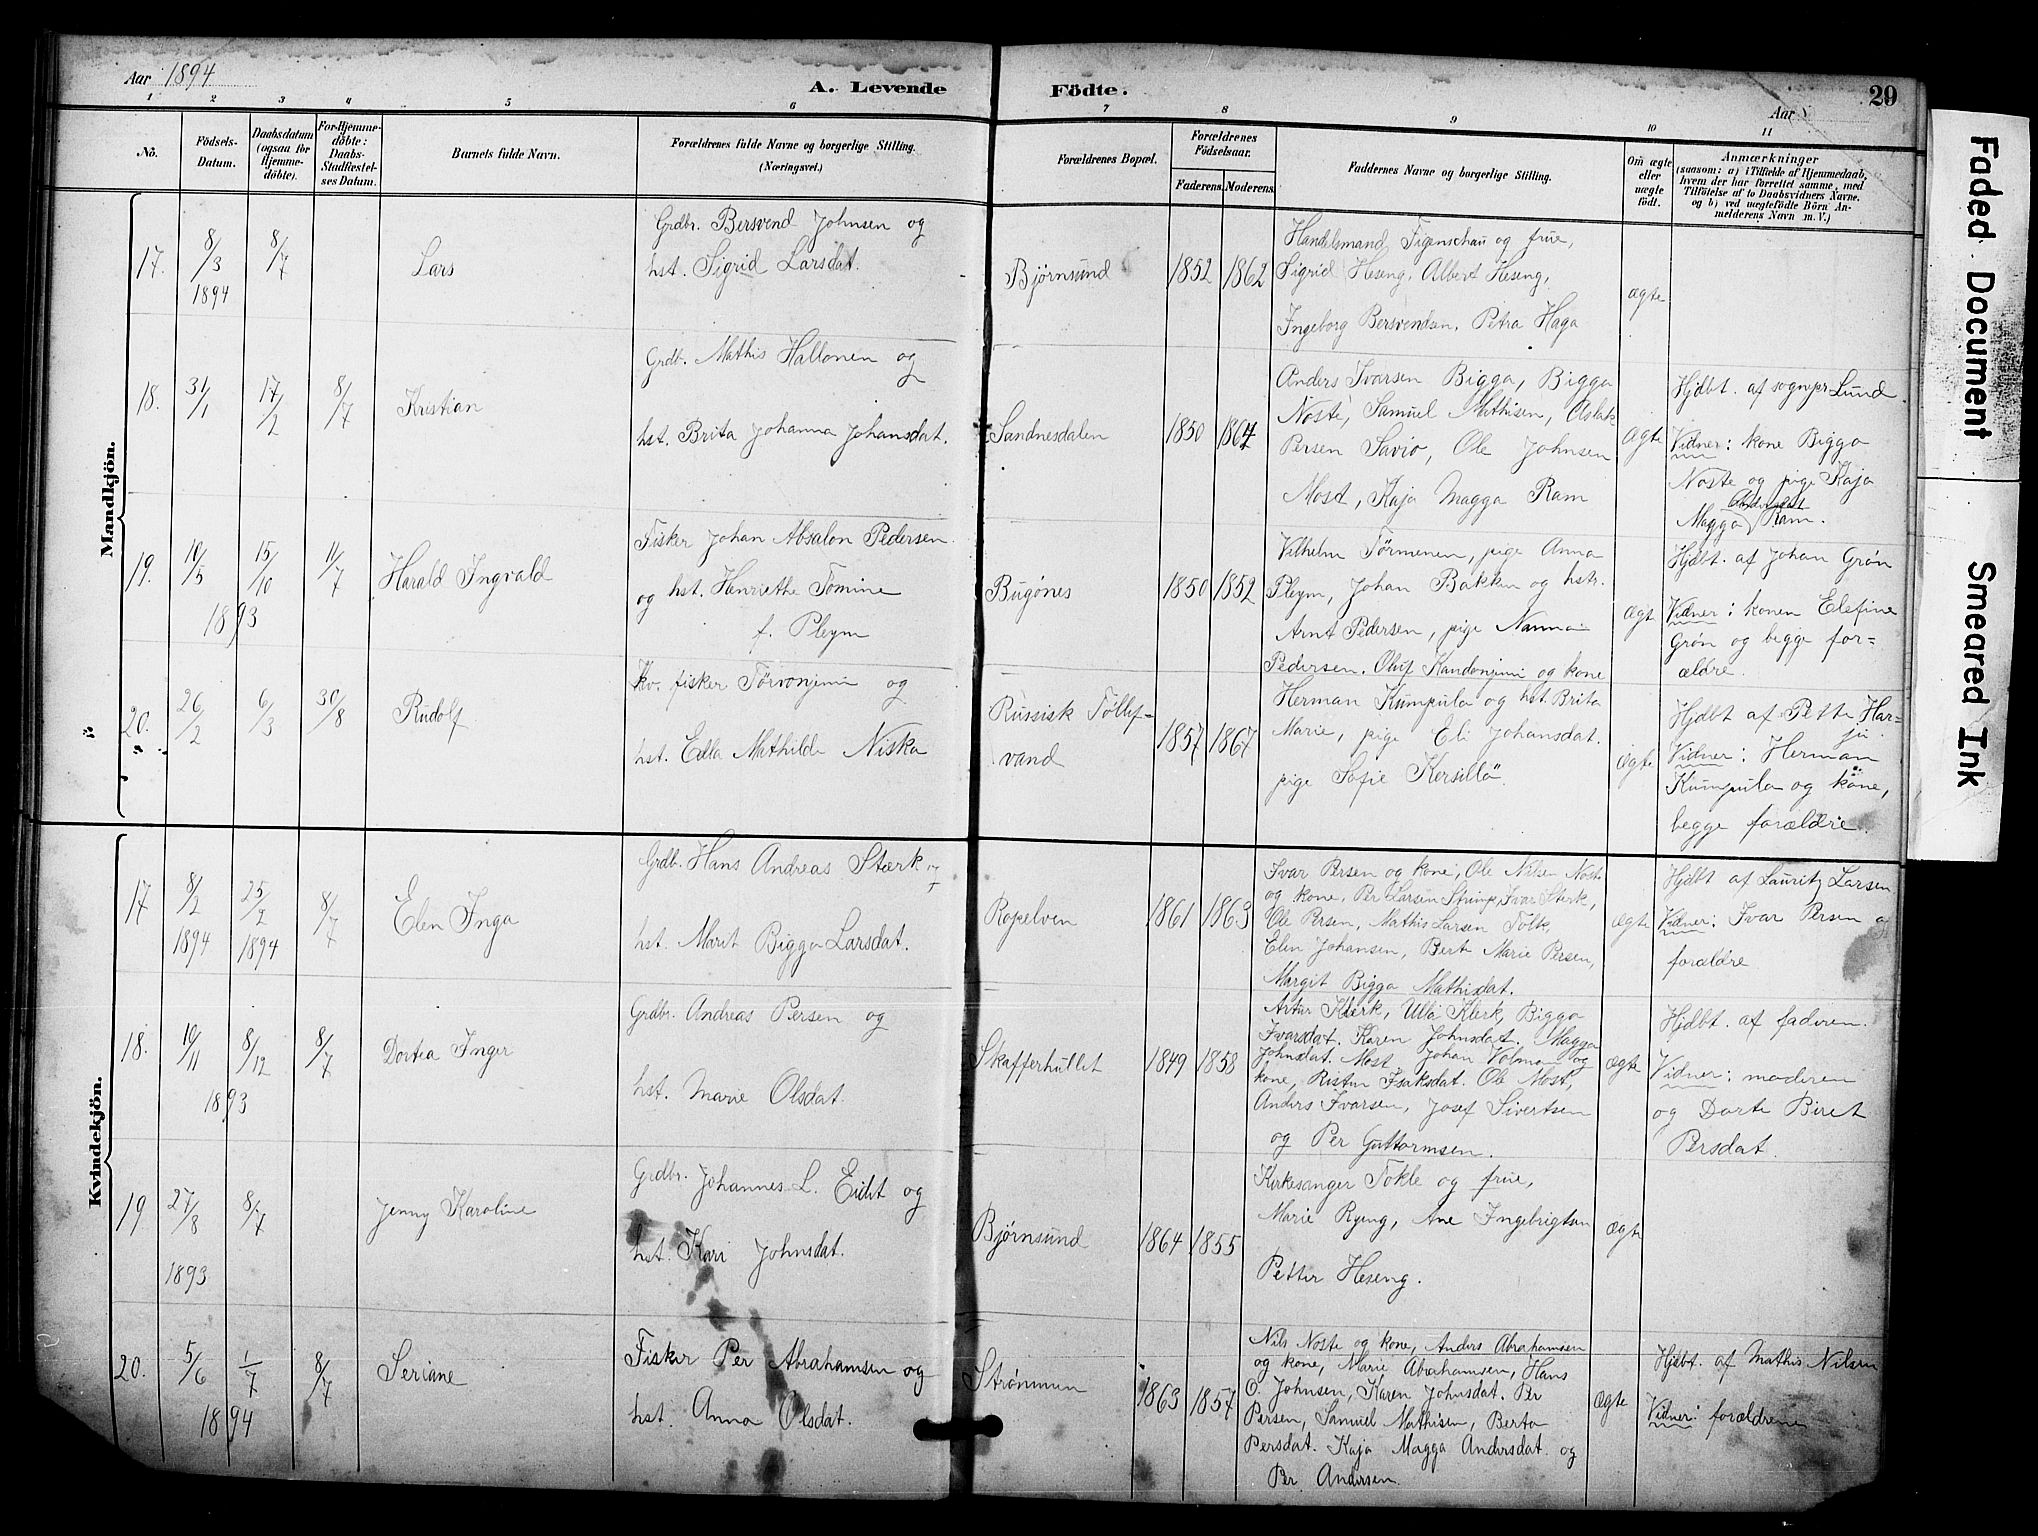 Aar 1894
A. Levende Födte.
Aar
29
1 2 3 4 5 6 7 8 9 10 11
No.
Födsels-Datum.
Daabsdatum (ogsaa for Hjemmedöbte).
For Hjemmedöbte: Daabs-Stadfæstelses Datum.
Barnets fulde Navn.
Forældrenes fulde Navne og borgerlige Stilling. (Næringsvei.)
Forældrenes Bopæl.
Forældrenes Födselsaar.
Faderens. Moderens.
Faddernes Navne og borgerlige Stilling.
Om ægte eller uægte födt.
Anmærkninger
(saasom: a) i Tilfælde af Hjemmedaab, hvem der har forrettet samme, med Tilföielse af to Daabsvidners Navne. og b) ved uægtefödte Börn Anmelderens Navn m. V.)
Mandkjön.
17. 8/3 1894 8/7
Lars
Grdbr. Bersvend Johnsen og
hst. Sigrid Larsdat.
Bjørnsund
1852 1862
Handelsmand Figenschau og frue,
Sigrid Heseng, Albert Heseng,
Ingeborg Bersvendsen, Petra Haga
ægte
18. 31/1 17/2 8/7
Kristian
Grdb. Mathis Hallonen og
hst. Brita Johanna Johansdat.
Sandnesdalen
1850 1864
Anders Ivarsen Bigga, Bigga
Noste, Samuel Mathisen, Aslak
Persen Savio, Ole Johnsen
Most, Kaja Magga Ram
ægte
Hjdbt. af sognepr. Lund.
Vidner: kone Bigga
Noste og pige Kaja
Magga Andersdat Ram.
19. 10/5 15/10 11/7
1893
Harald Ingvald
Fisker Johan Absalon Pedersen
og hst. Henriethe Tomine
f. Pleym
Bugønes
1850 1852
Vilhelm Törmenen, pige Anna
Pleym, Johan Bakken og hstr.
Arnt Pedersen, pige Nanna
Pedersen. Oluf Kandonjimi og kone
ægt
Hjdbt. af Johan Grøn
Vidner: konen Elefine
Grøn og begge for-
ældre.
20. 26/2 6/3 30/8
Rudolf
Kv. fisker Törvonjimi og
hst. Edla Mathilde Niska
Russisk Töllef-
vand
1857 1867
Herman Kumpula og hst. Brita
Marie, pige Eli Johansdat.
pige Sofie Korsillö.
ægte
Hjdbt af Pette Har-
ju.
Vidner: Herman
Kumpula og kone,
begge forældre.
Kvindekjön.
17 8/2 1894 25/2 1894 8/7
Elen Inga
Grdb. Hans Andreas Stærk og
hst. Marit Bigga Larsdat.
Ropelven
1861 1863
Ivar Persen og kone, Ole Nilsen Noste
og kone, Per Larsen Strimp, Ivar Sterk,
Ole Persen, Mathis Larsen Tolk,
Elen Johansen, Berit Marie Persen,
Margit Bigga Mathisdat.
ægte
Hjdbt af Lauritz Larsen
Vidner: Ivar Persen og
forældre
18. 10/11 8/12 8/7
1893
Dortea Inger
Grdbr. Andreas Persen og
hst. Marie Olsdat.
Skafferhullet
1849 1858
Artur Klerk, Ulla Klerk, Bigga
Ivarsdat. Karen Johnsdat. Magga
Johnsdat. Most Johan Volman og
kone, Ristin Isaksdat. Ole Most,
Anders Ivarsen, Josef Sivertsen
og Per Guttormsen.
ægte
Hjdbt. af faderen.
Vidner: moderen
og Dorte Biret
Persdat.
19. 27/8 1893 8/7
Jenny Karoline
Grdbr. Johannes L. Eidet og
hst. Kari Johnsdat.
Bjørnsund
1864 1855
Kirkesanger Tokle og frue,
Marie Ryeng, Ane Ingebrigtsen
Petter Heseng.
ægte
20. 5/6 1/7 8/7
1894
Seriane
Fisker Per Abrahamsen og
hst. Anna Olsdat.
Strömmen
1863 1857
Nils Noste og kone, Anders Abrahamsen
og kone, Marie Abrahamsen, Hans
O. Johnsen, Karen Johnsdat. Per
Persen, Samuel Mathisen, Berta
Persdat. Kaja Magga Andersdat. og
Per Andersen.
ægte
Hjdbt. af Mathis Nilsen
Vidner: forældrene
Faded Document
Smeared Ink